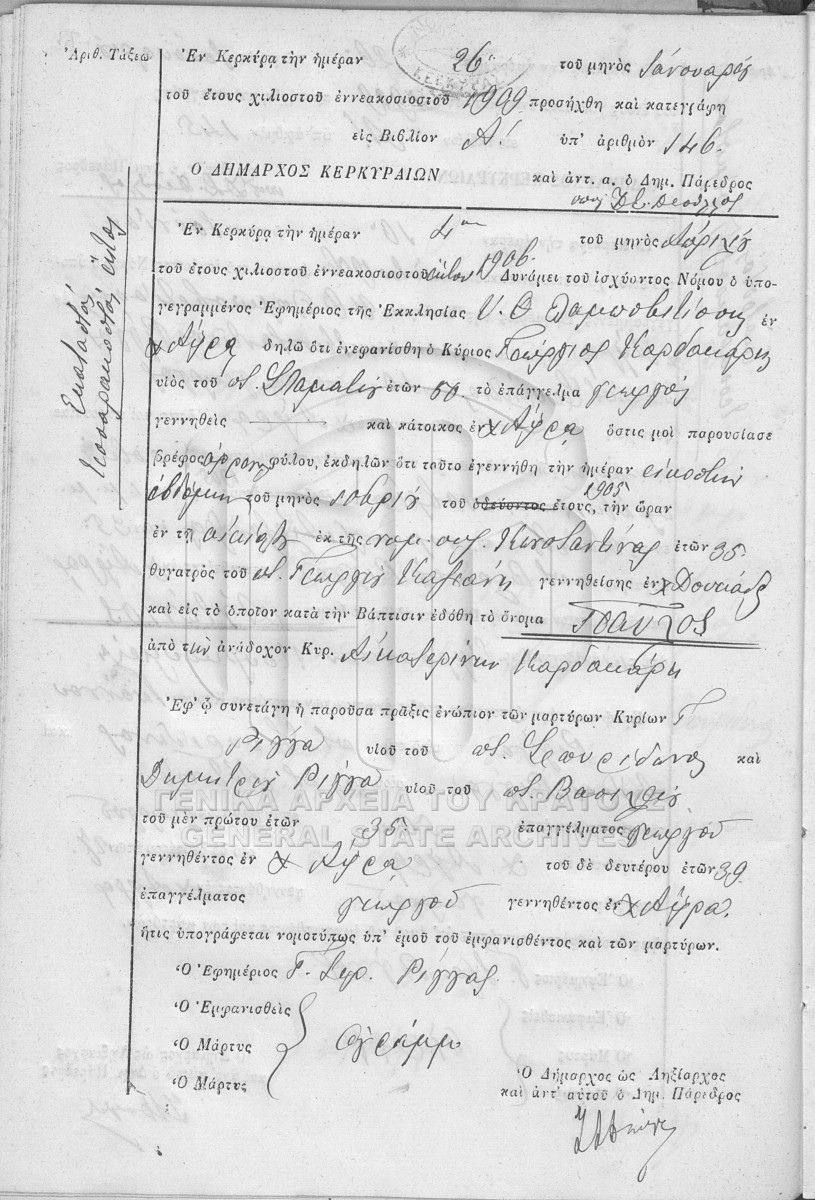 Ἀριθ. Τάξεω
Ἐν Κερκύρᾳ τὴν ἡμέραν 26 τοῦ μηνὸς Ἰανουαρίου
τοῦ ἔτους χιλιοστοῦ ἐννεακοσιοστοῦ 1909 προσήχθη καὶ κατεγράφη
εἰς Βιβλίον Α! ὑπ' ἀριθμὸν 146.
Ο ΔΗΜΑΡΧΟΣ ΚΕΡΚΥΡΑΙΩΝ καὶ ἀντ. α. ὁ Δημ. Πάρεδρος
Ἑκατοστὸς
τεσσαρακοστὸς ἕκτος
Ἐν Κερκύρᾳ τὴν ἡμέραν 4ην τοῦ μηνὸς Ἀπριλίου
τοῦ ἔτους χιλιοστοῦ ἐννεακοσιοστοῦ ἕκτου 1906 Δυνάμει τοῦ ἰσχύοντος Νόμου ὁ ὑπο-
γεγραμμένος Ἐφημέριος τῆς Ἐκκλησίας Υ. Θ. Λαμποβιτίσσης ἐν
χ Ἄφρᾳ δηλῶ ὅτι ἐνεφανίσθη ὁ Κύριος Γεώργιος Καρδακάρης
υἱὸς τοῦ ποτ. Σταματίου ἐτῶν τὸ ἐπάγγελμα γεωργὸς
γεννηθεὶς καὶ κάτοικος ἐν χ Ἄφρᾳ ὅστις μοὶ παρουσίασε
βρέφος ἄρρεν φύλου, ἐκδηλῶν ὅτι τοῦτο ἐγεννήθη τὴν ἡμέραν εἰκοστὴν
ἑβδόμην τοῦ μηνὸς τοῦ ὁδεύοντος ἔτους, 1905 τὴν ὥραν
ἐν τῇ οἰκίᾳ ἐκ τῆς νομ. συζ. Κωνσταντίνας ἐτῶν 35
θυγατρὸς τοῦ ποτ. Γεωργίου γεννηθείσης ἐν χ Δουκάδες
καὶ εἰς τὸ ὁποῖον κατὰ τὴν Βάπτισιν ἐδόθη τὸ ὄνομα Παῦλος
ἀπὸ τὴν ἀνάδοχον Κυρ. Αἰκατερίνην Καρδακάρη
Ἐφ' ᾧ συνετάγη ἡ παροῦσα πρᾶξις ἐνώπιον τῶν μαρτύρων Κυρίων Γ
Ρίγγα υἱοῦ τοῦ ποτ. Σπυρίδωνος καὶ
Δημητρίου Ρίγγα υἱοῦ τοῦ ποτ. Βασιλείου
ΓΕΝΙΚΑ ΑΡΧΕΙΑ ΤΟΥ ΚΡΑΤΟΥΣ
τοῦ μὲν πρώτου ἐτῶν 35 ἐπαγγέλματος γεωργοῦ
GENERAL STATE ARCHIVES
γεννηθέντος ἐν χ Ἄφρα τοῦ δὲ δευτέρου ἐτῶν 39
ἐπαγγέλματος γεωργοῦ γεννηθέντος ἐν χ Ἄφρα.
ἥτις ὑπογράφεται νομοτύπως ὑπ' ἐμοῦ τοῦ ἐμφανισθέντος καὶ τῶν μαρτύρων.
Ὁ Ἐφημέριος Γ. Σπρ. Ρίγγας
Ὁ Ἐμφανισθεὶς
Ὁ Μάρτυς ἀγράμμ
Ὁ Μάρτυς
Ὁ Δήμαρχος ὡς Ληξίαρχος
καὶ ἀντ' αὐτοῦ ὁ Δημ. Πάρεδρος